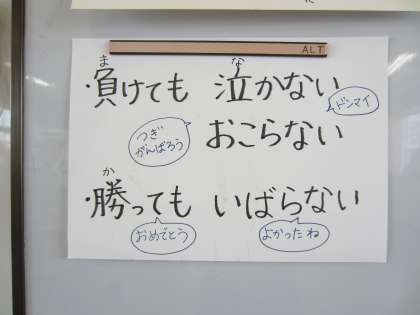 ALT
・負けても 泣かない
ま な
ドンマイ
つぎ
がんばろう
おこらない
・勝っても いばらない
か
おめでとう
よかったね